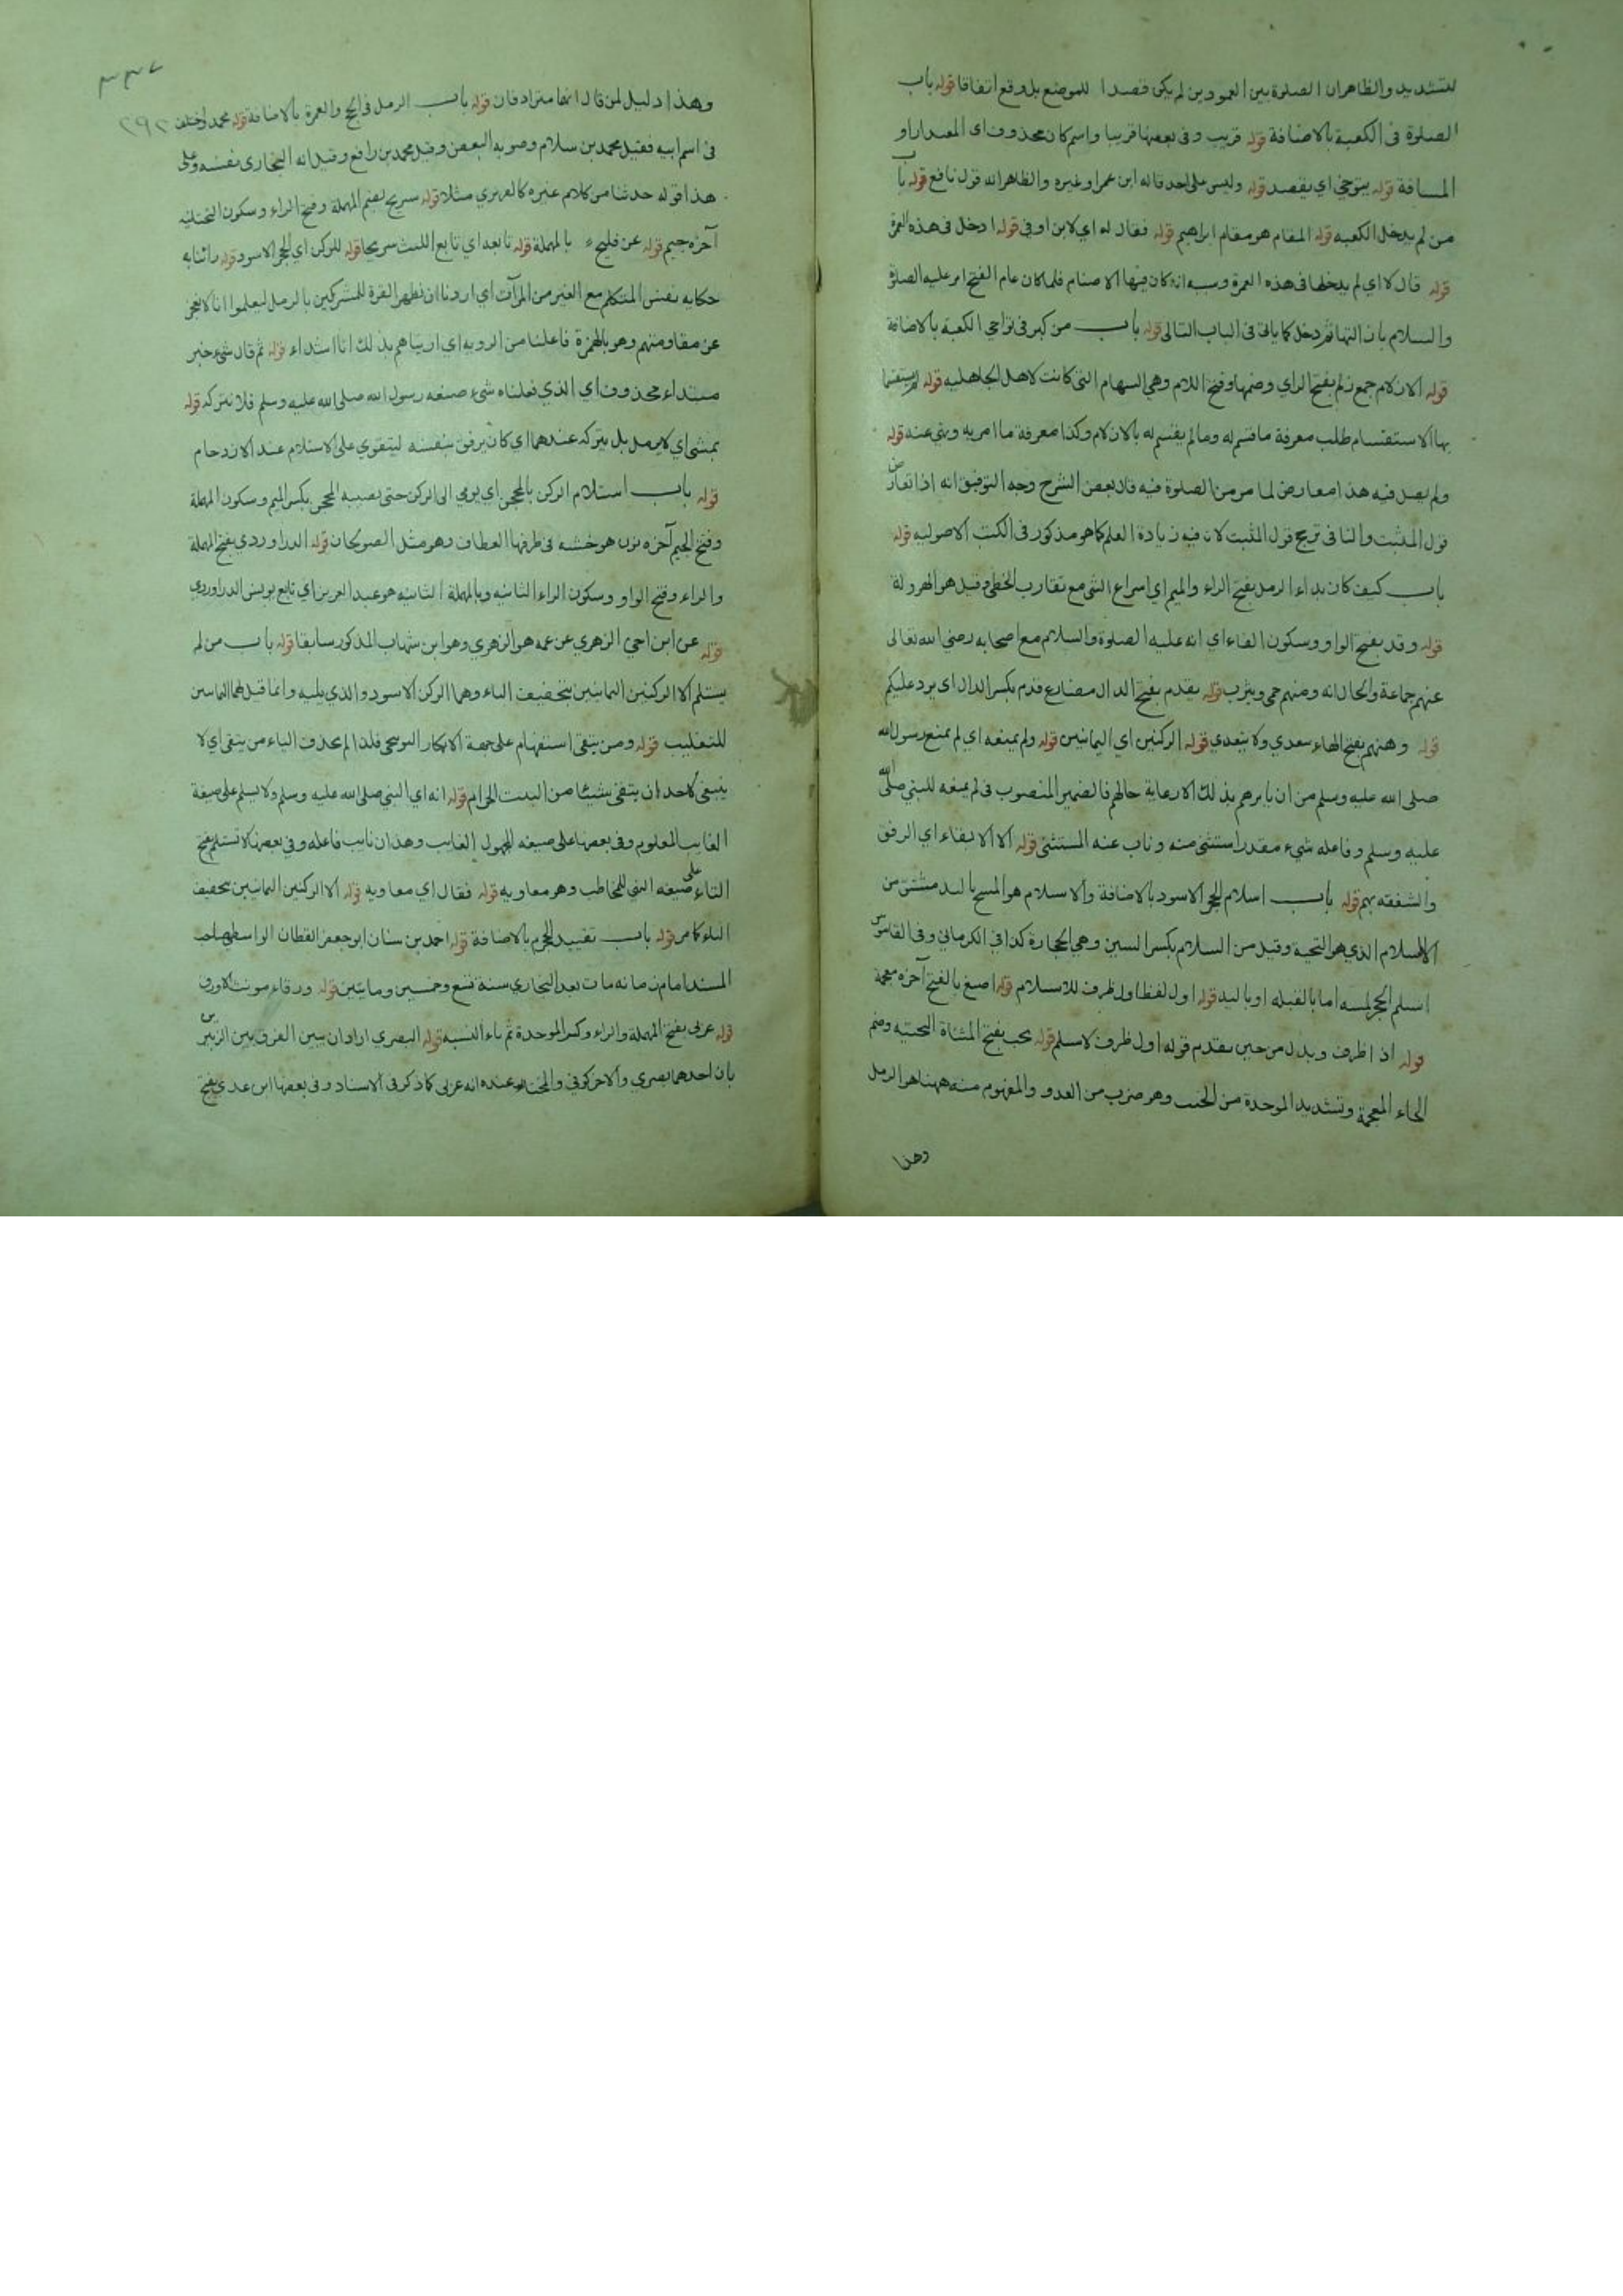 للتشديد والظاهر ان الصلوة بين العمودين لم يكن قصدا للموضع بل وقع اتفاقا قوله باب
الصلوة في الكعبة بالاضافة قوله قريب وفي بعضها قريبا واسم كان محذوف اي المقدار او
المسافة قوله يتوخى اي يقصد قوله وليس على احد قاله ابن عمر او غيره والظاهر انه قول نافع قوله باب
من لم يدخل الكعبه قوله المقام هو مقام ابراهيم قوله فقال له اي لابن اوفى قوله ادخل في هذه العمرة
قوله قال لا اي لم يدخلها في هذه العمرة وسببه انه كان فيها الاصنام فلما كان عام الفتح امر عليه الصلوة
والسلام بازالتها ثم دخل كما ياتي في الباب التالي قوله باب من كبر في نواحي الكعبة بالاضافة
قوله الازلام جمع زلم بفتح الزاي وضمها وفتح اللام وهي السهام التي كانت لاهل الجاهليه قوله لم يستقسما
بها الاستقسام طلب معرفة ما قسم له وما لم يقسم له بالازلام وكذا معرفة ما امر به ونهي عنه قوله
ولم يصل فيه هذا معارض لما مر من الصلوة فيه قال بعض الشرح وجه التوفيق انه اذا تعارض
قول المثبت والنافي ترجح قول المثبت لان فيه زيادة العلم كما هو مذكور في الكتب الاصوليه قوله
باب كيف كان بداء الرمل بفتح الراء والميم اي اسراع المشي مع تقارب الخطى وقيل هو الهرولة
قوله وقد بفتح الواو وسكون الفاء اي انه عليه الصلوة والسلام مع اصحابه رضي الله تعالى
عنهم جماعة والحال انه وهنهم حمى ويثرب قوله يقدم بفتح الدال مضارع قدم بكسر الدال اي يرد عليكم
قوله وهنهم بفتح الهاء يتعدي ولا يتعدي قوله الركنين اي اليمانيين قوله ولم يمنعه اي لم يمنع رسول الله
صلى الله عليه وسلم من ان يامرهم بذلك الا رعاية حالهم فالضمير المنصوب في لم يمنعه للنبي صلى الله
عليه وسلم وفاعله شيء مقدر استثنى منه وناب عنه المستثنى قوله الا الابقاء اي الرفق
والشفقه بهم قوله باب استلام الحجر الاسود بالاضافة والاستلام هو المسح باليد مشتق من
السلام الذي هو التحية وقيل من السلام بكسر السين وهي الحجارة كذا في الكرماني وفي القاموس
استلم الحجر لمسه اما بالقبله او باليد قوله اول لفظ اول ظرف للاستلام قوله اصبغ بالفتح آخره معجمة
قوله اذا ظرف وبدل من حين يقدم قوله اول ظرف لاستلم قوله يخب بفتح المثناة التحتيه وضم
الخاء المعجمة وتشديد الموحدة من الخبب وهو ضرب من العدو والمفهوم منه ههنا هو الرمل
وهذا
٢٩٢
وهذا دليل لمن قال انهما مترادفان قوله باب الرمل في الحج والعمرة بالاضافة قوله محمد واختلف
في اسم ابيه فقيل محمد بن سلام وصوبه البعض وقيل محمد بن رافع وقيل انه البخاري نفسه وعلى
هذا قوله حدثنا من كلام غيره كالفربري مثلا قوله سريج بضم المهملة وفتح الراء وسكون التحتانيه
آخره جيم قوله عن فليح بالمهملة قوله تابعه اي تابع الليث سريجا قوله للركن اي الحجر الاسود قوله رائنا به
حكايه نفس المتكلم مع الغير من المرآت اي اردنا ان نظهر القوة للمشركين بالرمل ليعلموا انا لا نعجز
عن مقاومتهم وهو بالهمزة فاعلنا من الرويه اي اريناهم بذلك انا اشداء قوله ثم قال شيء خبر
مبتداء محذوف اي الذي فعلناه شيء صنعه رسول الله صلى الله عليه وسلم فلا نتركه قوله
يمشي اي لا يرمل بل يتركه عندهما اي كان يرفق بنفسه ليتقوي على الاستلام عند الازدحام
قوله باب استلام الركن بالمحجن اي يومي الى الركن حتى يصيبه المحجن بكسر الميم وسكون المهملة
وفتح الجيم آخره نون هو خشبه في طرفها العطاف وهو مثل الصولجان قوله الدراوردي بفتح المهملة
والراء وفتح الواو وسكون الراء الثانيه وبالمهملة الثانيه هو عبد العزيز اي تابع يونس الدراوردي
قوله عن ابن اخي الزهري عن عمه هو الزهري وهو ابن شهاب المذكور سابقا قوله باب من لم
يستلم الا الركنين اليمانيين بتخفيف الياء وهما الركن الاسود والذي يليه وانما قيل لهما اليمانيين
للتغليب قوله ومن يتقي استفهام على جهة الانكار التوبيخي فلذا لم يحذف الياء من يتقي اي لا
ينبغي لاحد ان يتقي شيئا من البيت الحرام قوله انه اي النبي صلى الله عليه وسلم ولا يستلم على صيغة
الغايب المعلوم وفي بعضها على صيغه المجهول الغايب وهذان نايب فاعله وفي بعضها لا تستلم بفتح
التاء على صيغه النهي للمخاطب وهو معاويه قوله فقال اي معاويه قوله الا الركنين اليمانيين بتخفيف
الياء كما مر قوله باب تقبيل الحجر بالاضافة قوله احمد بن سنان ابو جعفر القطان الواسطي صاحب
المسند امام زمانه مات بعد البخاري سنة تسع وخمسين ومايتين قوله ورقاء مونث الاورق
قوله عربي بفتح المهملة والراء وكسر الموحدة ثم ياء النسبه قوله البصري اراد ان يبين الفرق بين الزبيرين
بان احدهما بصري والاخر كوفي والمختار عنده انه عربي كما ذكر في الاسناد وفي بعضها ابن عدي بفتح